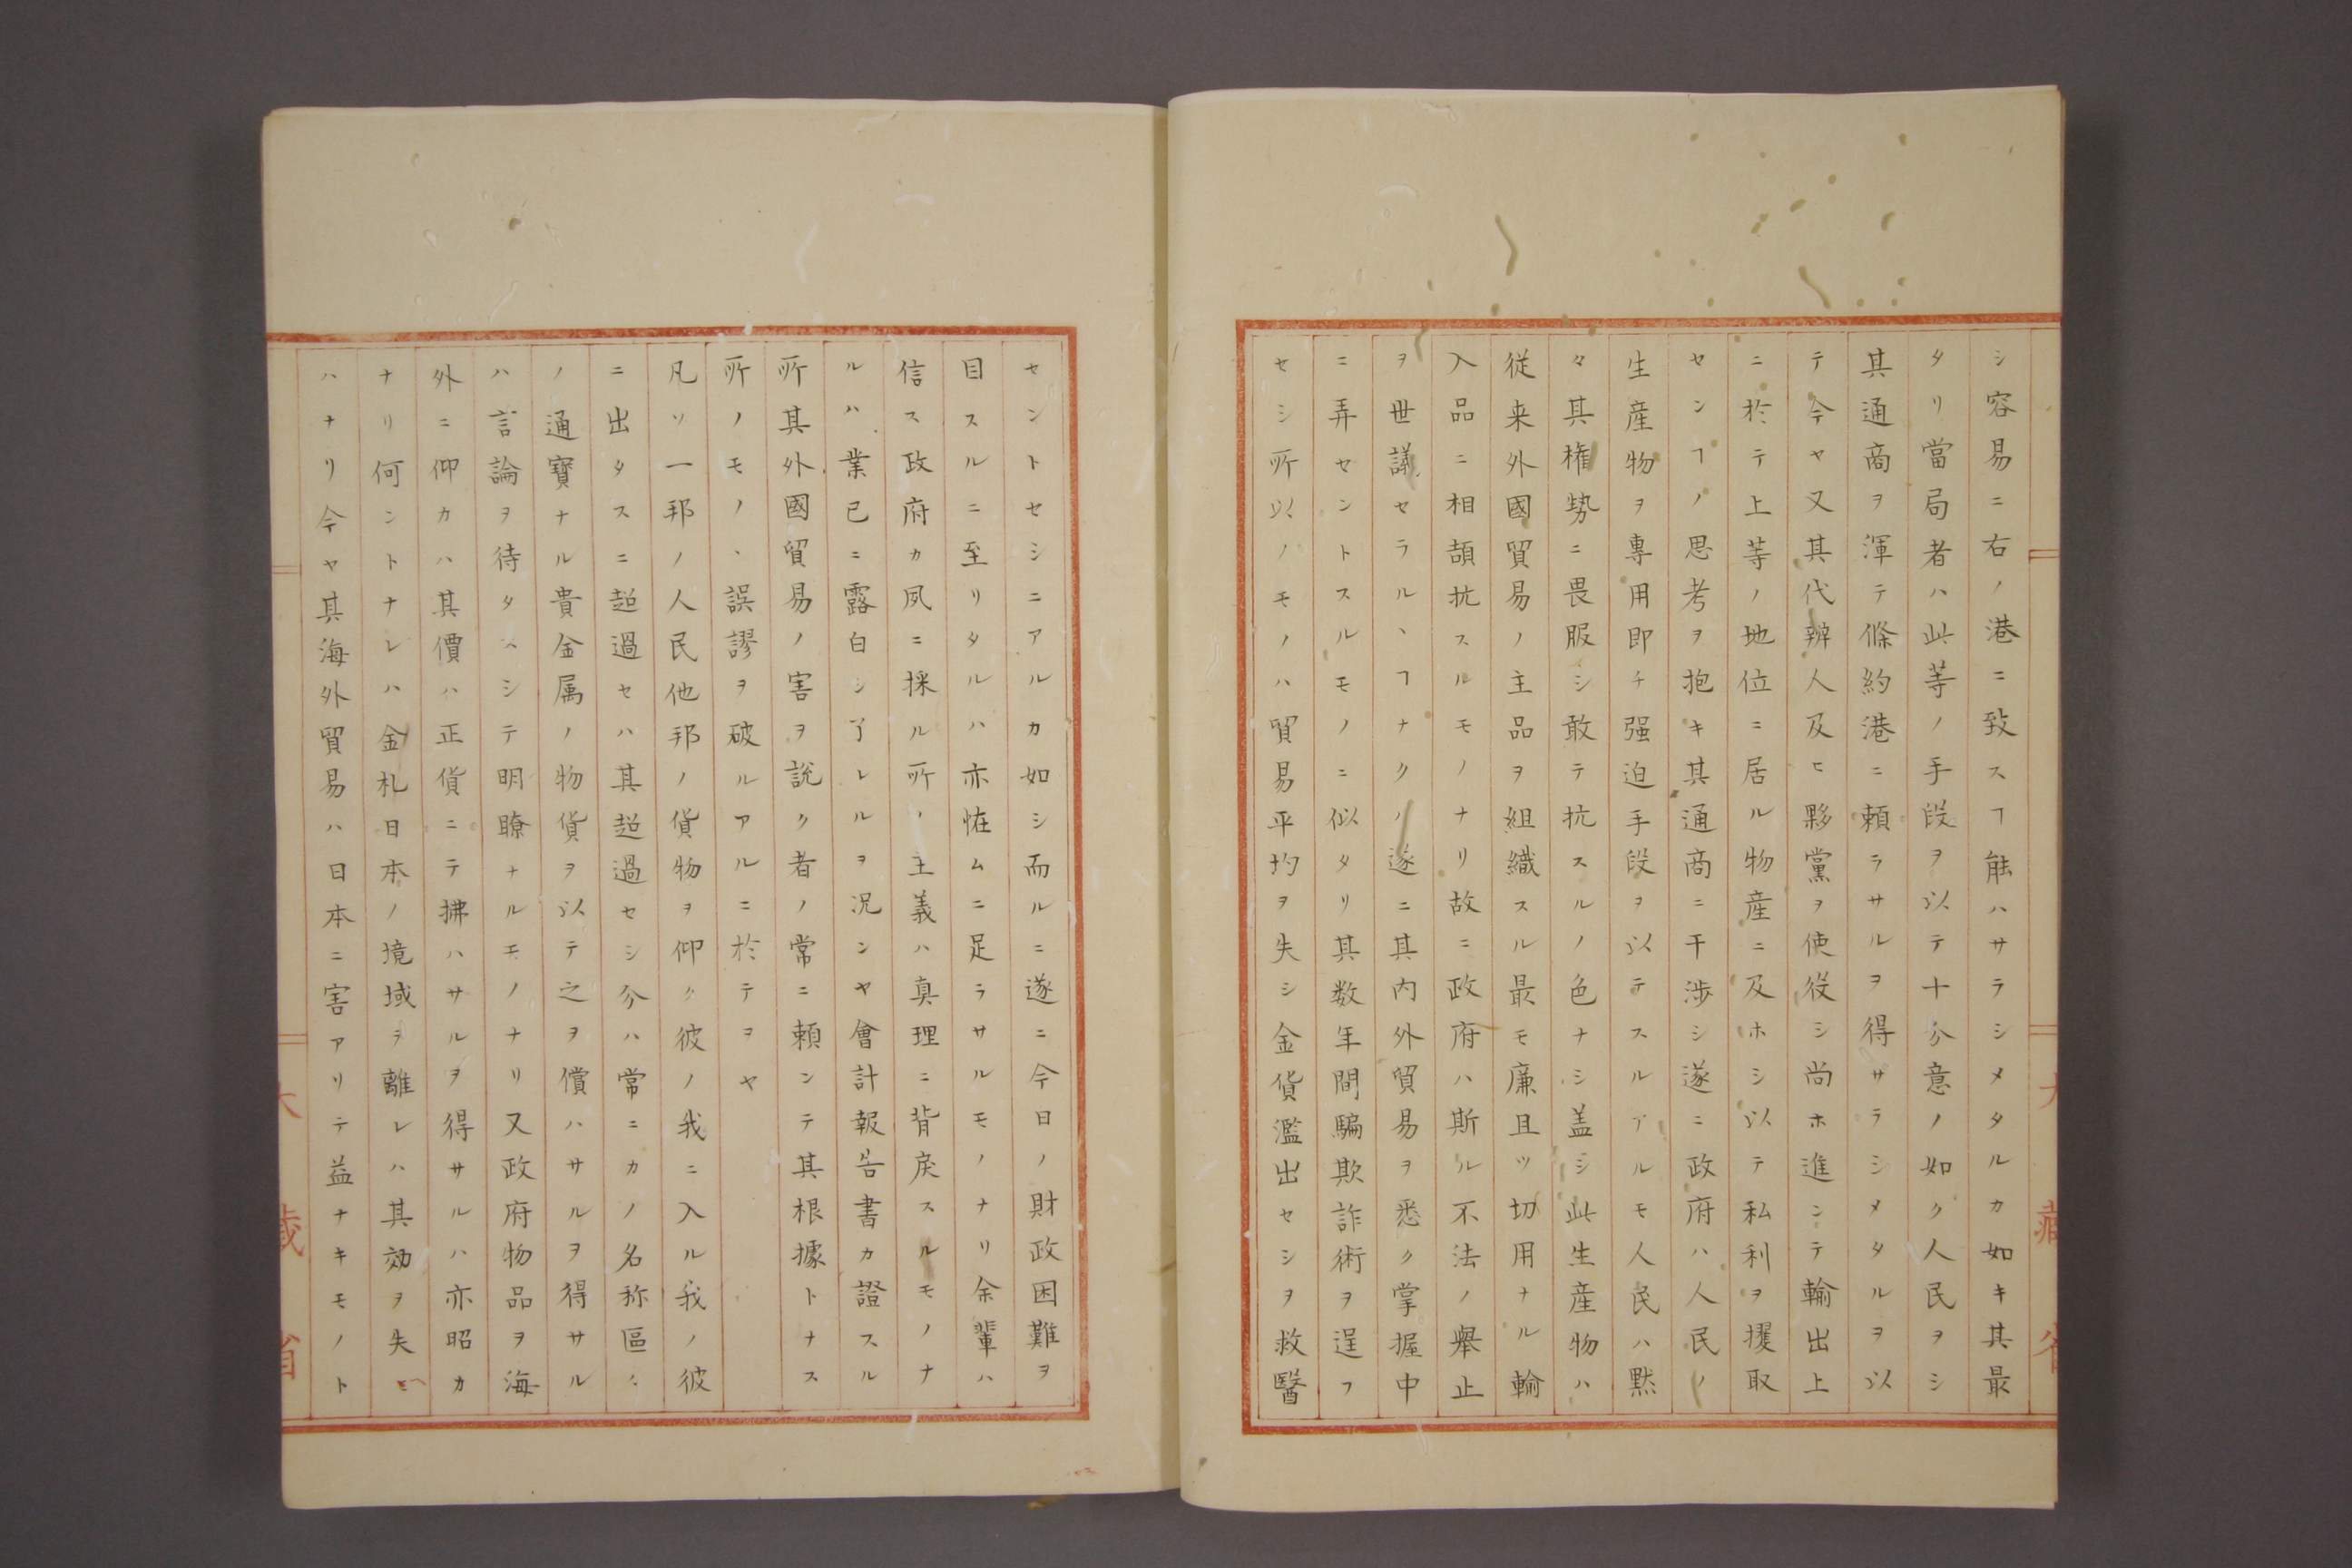 シ容易ニ右ノ港ニ致スヿ能ハサラシメタルカ如キ其最
タリ當局者ハ此等ノ手段ヲ以テ十分意ノ如ク人民ヲシ
其通商ヲ渾テ條約港ニ頼ラサルヲ得サラシメタルヲ以
テ今ヤ又其代辨人及ヒ夥黨ヲ使役シ尚ホ進ンテ輸出上
ニ於テ上等ノ地位ニ居ル物産ニ及ホシ以テ私利ヲ攫取
センヿノ思考ヲ抱キ其通商ニ干渉シ遂ニ政府ハ人民ノ
生産物ヲ專用即チ强迫手段ヲ以テスルアルモ人民ハ黙
々其権勢ニ畏服シ敢テ抗スルノ色ナシ盖シ此生産物ハ
従来外國貿易ノ主品ヲ組織スル最モ廉且ツ切用ナル輸
入品ニ相頡抗スルモノナリ故ニ政府ハ斯ル不法ノ舉止
ヲ世議セラルヽヿナクノ遂ニ其内外貿易ヲ悉ク掌握中
ニ弄セントスルモノニ似タリ其数年間騙欺詐術ヲ逞フ
セシ所以ノモノハ貿易平均ヲ失シ金貨濫出セシヲ救醫
セントセシニアルカ如シ而ルニ遂ニ今日ノ財政困難ヲ
目スルニ至リタルハ亦恠ムニ足ラサルモノナリ余輩ハ
信ス政府カ夙ニ採ル所ノ主義ハ真理ニ背戻スルモノナ
ルハ業已ニ露白シ了レルヲ況ンヤ會計報告書カ證スル
所其外國貿易ノ害ヲ説ク者ノ常ニ頼ンテ其根據トナス
所ノモノヽ誤謬ヲ破ルアルニ於テヲヤ
凡ソ一邦ノ人民他邦ノ貨物ヲ仰ク彼ノ我ニ入ル我ノ彼
ニ出タスニ超過セハ其超過セシ分ハ常ニカノ名称區々
ノ通寶ナル貴金属ノ物貨ヲ以テ之ヲ償ハサルヲ得サル
ハ言論ヲ待タスシテ明瞭ナルモノナリ又政府物品ヲ海
外ニ仰カハ其價ハ正貨ニテ拂ハサルヲ得サルハ亦昭カ
ナリ何ントナレハ金札日本ノ境域ヲ離レハ其効ヲ失ヘ
ハナリ今ヤ其海外貿易ハ日本ニ害アリテ益ナキモノト
大藏省
大藏省